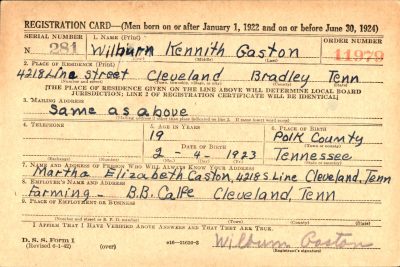 REGISTRATION CARD—(Men born on or after January 1, 1922 and on or before June 30, 1924)
SERIAL NUMBER 1. NAME (Print) ORDER NUMBER
N 281 Wilburn Kennith Gaston 11979
(First) (Middle) (Last)
2. PLACE OF RESIDENCE (Print)
4218 Line Street Cleveland Bradley Tenn
(Number and street) (Town, township, village, or city) (County) (State)
[THE PLACE OF RESIDENCE GIVEN ON THE LINE ABOVE WILL DETERMINE LOCAL BOARD
JURISDICTION; LINE 2 OF REGISTRATION CERTIFICATE WILL BE IDENTICAL]
3. MAILING ADDRESS
Same as above
[Mailing address if other than place indicated on line 2. If same insert word same]
4. TELEPHONE 5. AGE IN YEARS 6. PLACE OF BIRTH
19 Polk County
DATE OF BIRTH (Town or county)
2 - 4 - 1923 Tennessee
(Exchange) (Number) (Mo.) (Day) (Yr.) (State or country)
7. NAME AND ADDRESS OF PERSON WHO WILL ALWAYS KNOW YOUR ADDRESS
Martha Elizabeth Gaston, 4218 S Line Cleveland, Tenn
8. EMPLOYER'S NAME AND ADDRESS
Farming - B.B. Calfe Cleveland, Tenn
9. PLACE OF EMPLOYMENT OR BUSINESS
(Number and street or R. F. D. number) (Town) (County) (State)
I AFFIRM THAT I HAVE VERIFIED ABOVE ANSWERS AND THAT THEY ARE TRUE.
D. S. S. Form 1
(Revised 6-1-42) (over) Wilburn Gaston
(Registrant's signature)